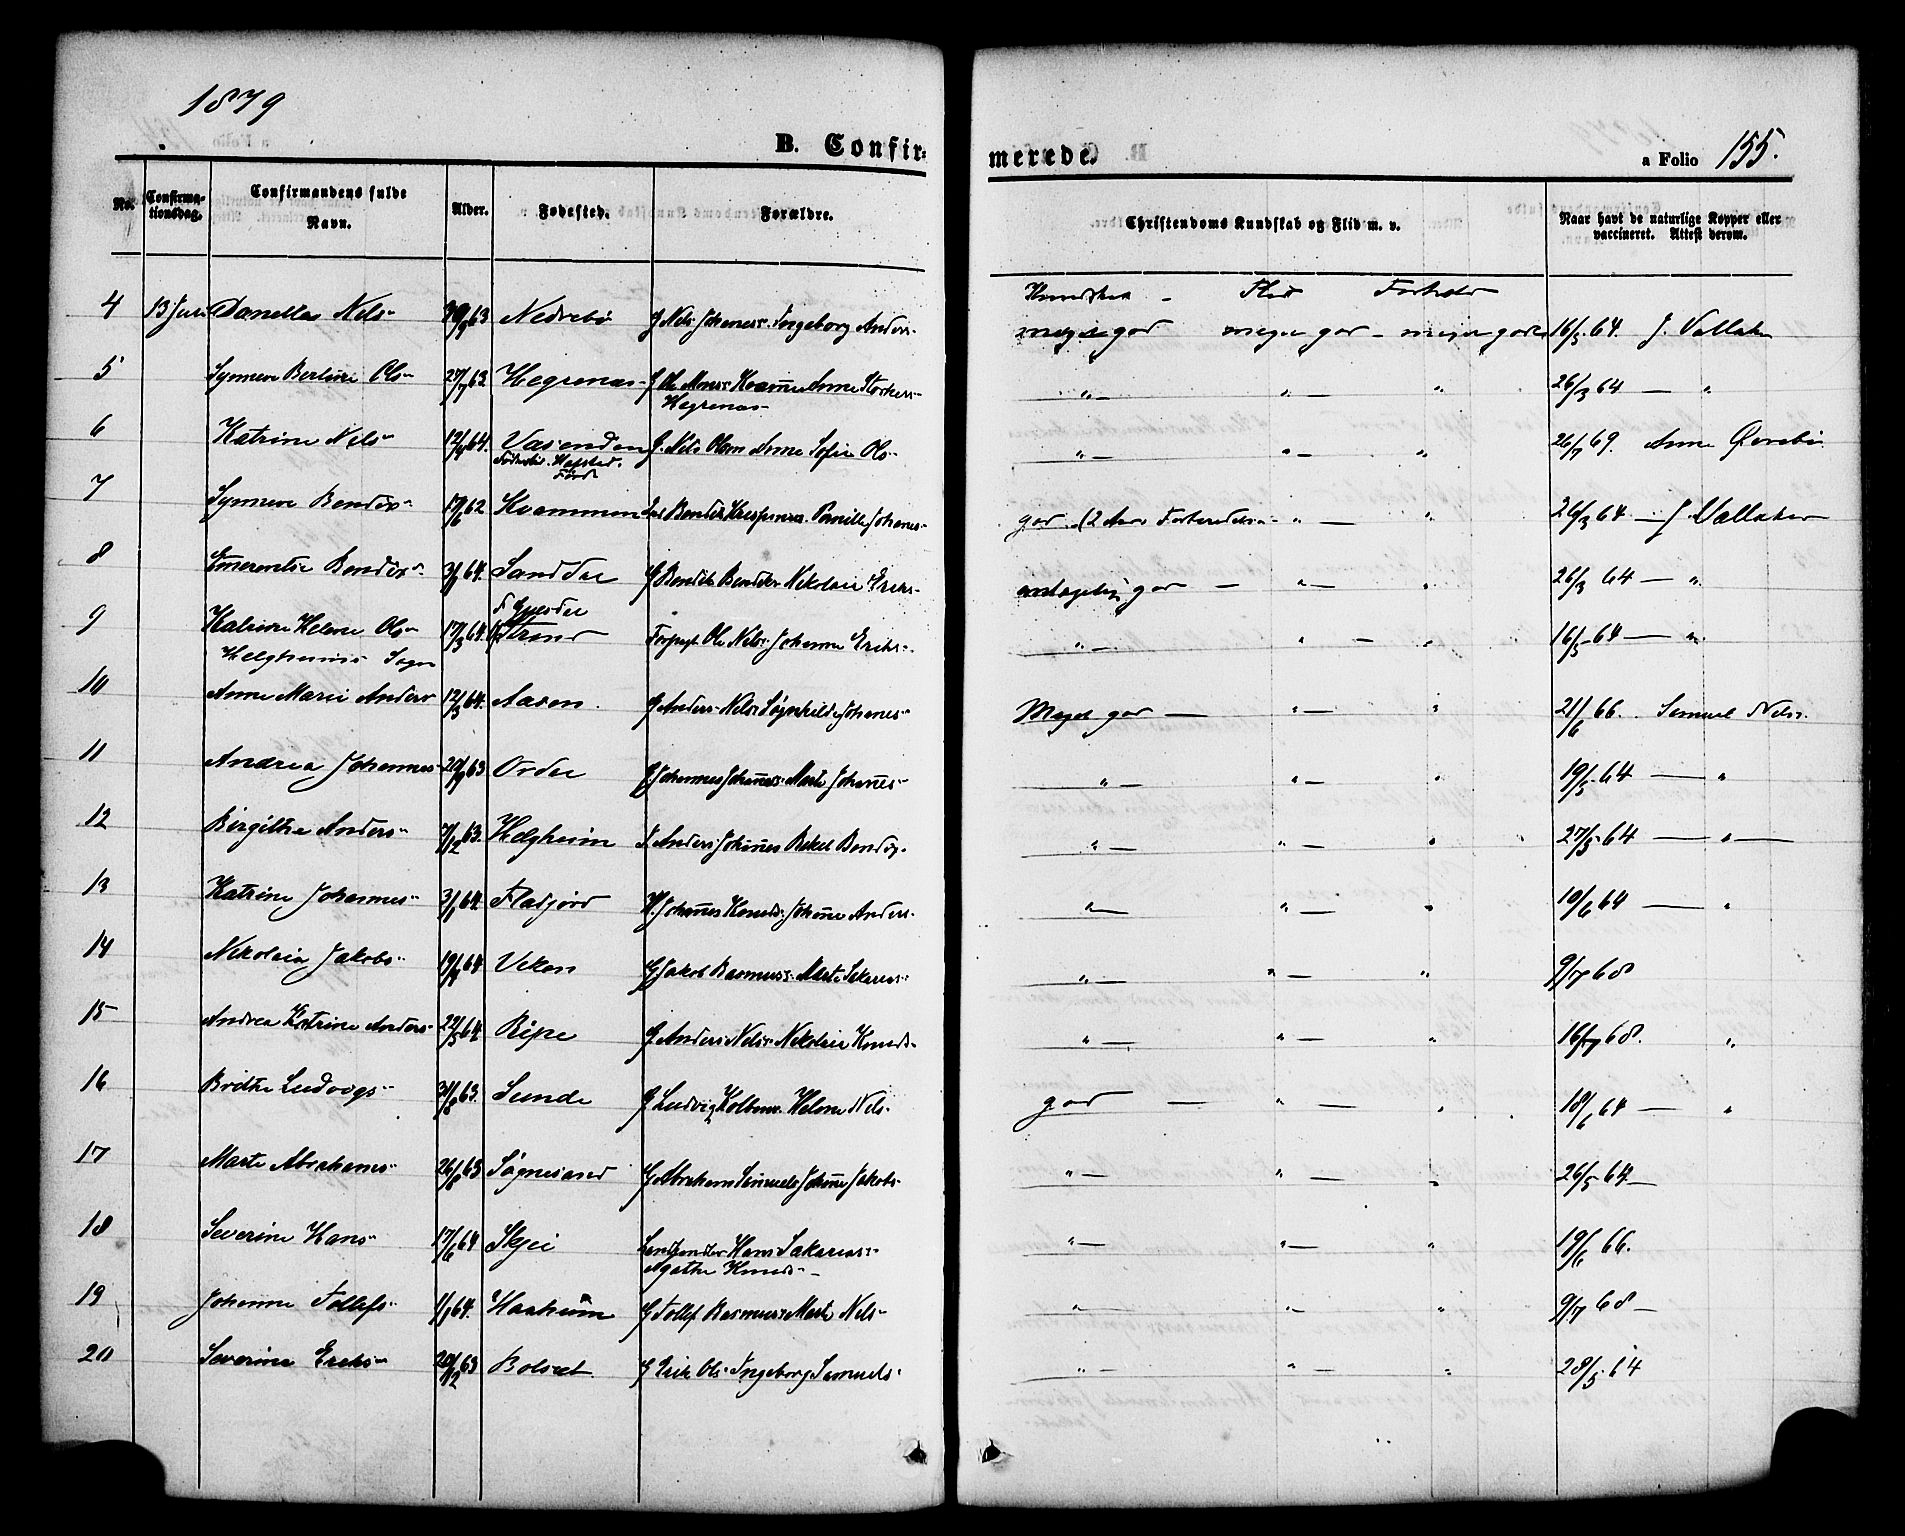 1879
B. Confirmerede.
a Folio 155.
No. Confirmationsdag. Confirmandens fulde Navn. Alder. Fødested. Forældre. Christendoms Kundskab og Flid m. v. Naar havt de naturlige Kopper eller vaccineret. Attest derom.
Kundskab - Flid Forhold
4 13 Juli Danella Nels- 63 Nedrebø G Nels Johaness. Ingeborg Anders- meget god meget god - meget godt 16/5 64. J. Vallaker
5 Synneve Berline Ols- 27/7 63 Hegrenæs- Mons Kvamme Anne Storkers- " — " — " 26/3 64 — "
Hegrenæs-
6 Katrine Nels- 12/ 64. Vasenden G. Nels Olsen Anne Sofie Ols- " — " — " 26/7 69. Anne Øvrebø
Hafstad. Førde
7 Synneve Bendix- 17/6 62 Kvammen Bendix Krispinus. Pernille Johanes- god (2 Aars Forberedelse " — " 26/3 64 — J Vallaker
8 Emerentse Bendix- 3/ 64. Sanddal G Bendik Bendiks. Nikolaie Eriks- god — " — " 26/3 64 — "
9 Katrine Helene Ols- 17/3 64. Strand Ole Nels. Johanne Eriks- " — " — " 16/5 64 — "
Helgheims Sogn
10 Anne Marie Anders- 12/3 64. Aasen G Anders Nels. Søgnhild Johanes- Meget god — " — " 21/6 66. Samuel Nels.
11 Andrea Johannes- 20/ 63 Ordal G Johannes Johannes. Marte Johanes- " — " — " 19/5 64 — "
12 Birgithe Anders- 7/12 63. Helgheim Anders Johannes Rakel Bendix- " — " — " 27/5 64 — " —
13 Katrine Johannes- 3/1 64. Fladjord H. Johannes Knuds. Johanne Anders. " — " — " 10/6 64 — "
14 Nikolaia Jakobs- 19/ 64 Veken G Jakob Rasmuss. Marte Sakarias- " — " — " 9/7 68
15 Andrea Katrine Anders- 22/5 64. Ripe G Anders Nels. Nikolaie Knuds- " — " — " 16/7 68. "
16 Brithe Ludvigs- 31/8 63. Sunde G Ludvig Kolbens. Helene Nels- god — " — " 18/6 64 — "
17 Marte Abrahams- 26/8 63 Søgnesand G Abraham Samuels Johanne Jakobs- " — " — " 26/5 64 —
18 Severine Hans- 17/6 64 Skjei Hans Sakarias- " — " — " 19/6 66.
Agathe Knuds-
19 Johanne Tollefs- 1/ 64. Haaheim G Tollef Rasmuss Marte Nels- " — " — " 9/7 68 —
20 Severine Eriks- 20/12 63 Bolsæt G Erik Ols. Ingeborg Samuels- " — " — " 28/5 64